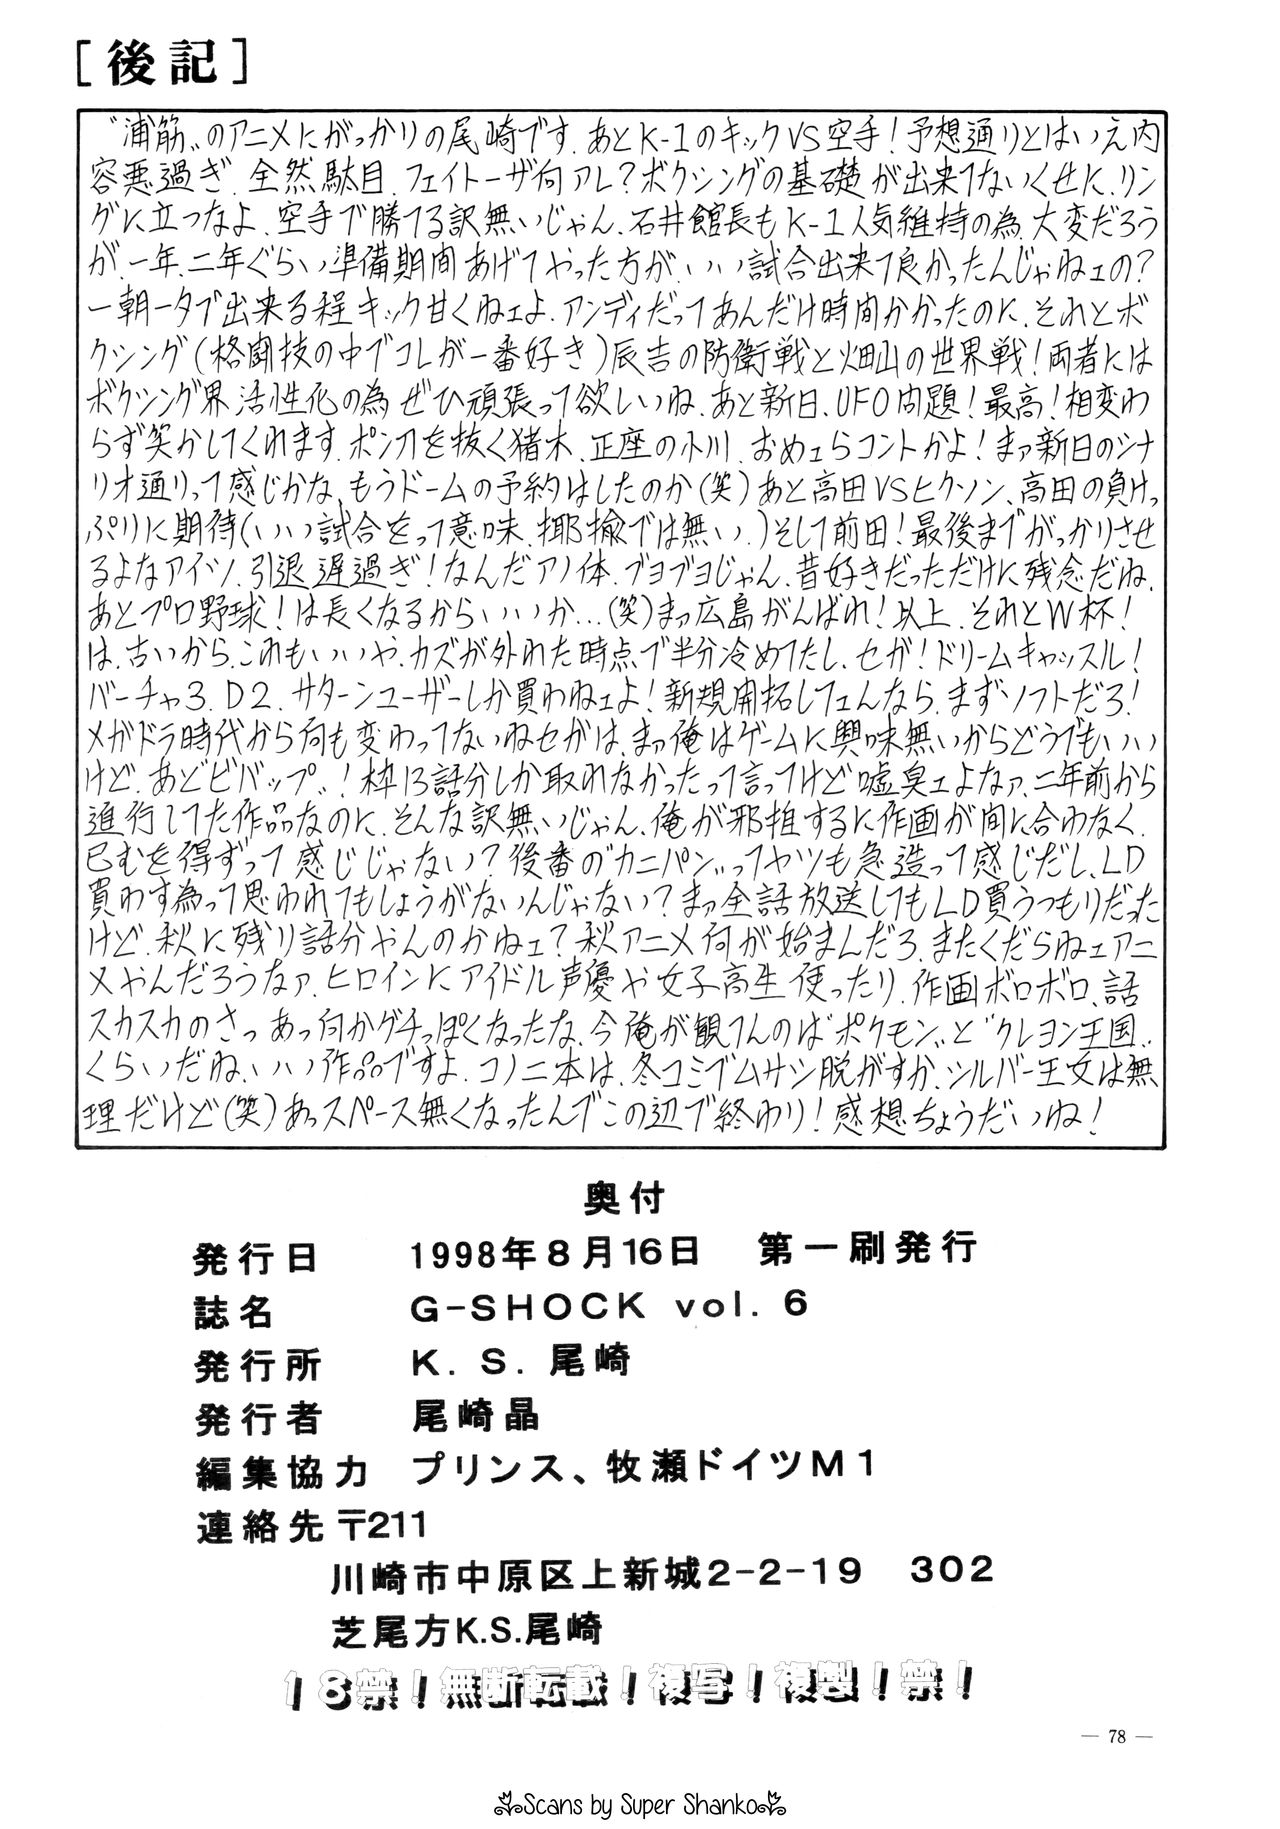 [後記]
〝浦筋〟のアニメにがっかりの尾崎です.あとK-1のキックVS空手!予想通りとはいえ内
容悪過ぎ.全然駄目.フェイトーザ何アレ?ボクシングの基礎が出来てないくせに.リン
グに立つなよ.空手で勝てる訳無いじゃん.石井館長もK-1人気維持の為.大変だろう
が.一年.二年ぐらい準備期間あげてやった方が.いい試合出来て良かったんじゃねェの?
一朝一夕で出来る程キック甘くねェよ.アンディだってあんだけ時間かかったのに.それとボ
クシング(格闘技の中でコレが一番好き)辰吉の防衛戦と畑山の世界戦!両者には
ボクシング界活性化の為ぜひ頑張って欲しいね.あと新日.UFO問題!最高!相変わ
らず笑かしてくれます.ポン刀を抜く猪木.正座の小川.おめェらコントかよ!まァ新日のシナ
リオ通りって感じかな.もうドームの予約はしたのか(笑)あと高田VSヒクソン、高田の負けっ
ぷりに期待(いい試合をって意味.揶揄では無い.)そして前田!最後までがっかりさせ
るよなアイツ.引退遅過ぎ!なんだアノ体.ブヨブヨじゃん.昔好きだっただけに残念だね.
あとプロ野球!は長くなるからいいか...(笑)まァ広島がんばれ!以上.それとW杯!
は.古いから.これもいいや.カズが外れた時点で半分冷めてたし.セガ!ドリームキャッスル!
バーチャ3.D2.サターンユーザーしか買わねェよ!新規開拓してェんなら.まずソフトだろ!
メガドラ時代から何も変わってないねセガは.まァ俺はゲームに興味無いからどうでもいい
けど.あと〝ビバップ〟!枠13話分しか取れなかったって言ってけど嘘臭ェよなァ.二年前から
進行してた作品なのに.そんな訳無いじゃん.俺が邪推するに作画が間に合わなく.
已むを得ずって感じじゃない?後番の〝カニパン〟ってヤツも急造って感じだし.LD
買わす為って思われてもしょうがないんじゃない?まァ全話放送してもLD買うつもりだった
けど.秋に残り話分やんのかねェ?秋アニメ何が始まんだろ.またくだらねェアニ
メやんだろうなァ.ヒロインにアイドル声優や女子高生使ったり.作画ボロボロ、話
スカスカのさっ.あっ何かグチっぽくなったな.今俺が観てんのは〝ポケモン〟と〝クレヨン王国〟
くらいだね.いい作品ですよ.コノ二本は.冬コミでムサシ脱がすか.シルバー王女は無
理だけど(笑)あっスペース無くなったんでこの辺で終わり!感想ちょうだいね!
奥付
発行日 1998年8月16日 第一刷発行
誌名 G-SHOCK vol. 6
発行所 K. S. 尾崎
発行者 尾崎晶
編集協力 プリンス、牧瀬ドイツM1
連絡先〒211
川崎市中原区上新城2-2-19 302
芝尾方K.S.尾崎
18禁!無断転載!複写!複製!禁!
— 78 —
Scans by Super Shanko